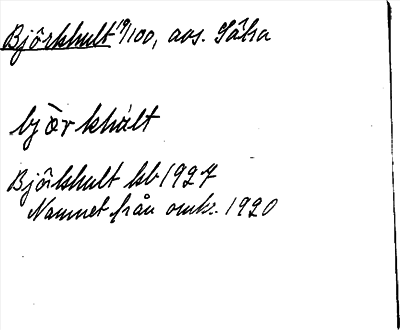 Björkhult 19/100, avs. Såha
bjòr khúlt
Björkhult kb 1927
Namnet från omkr. 1920